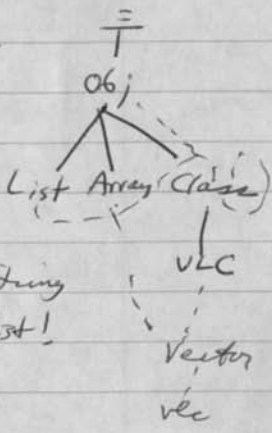 Obj
List Array (Class)
VLC
st!
Vector
vec